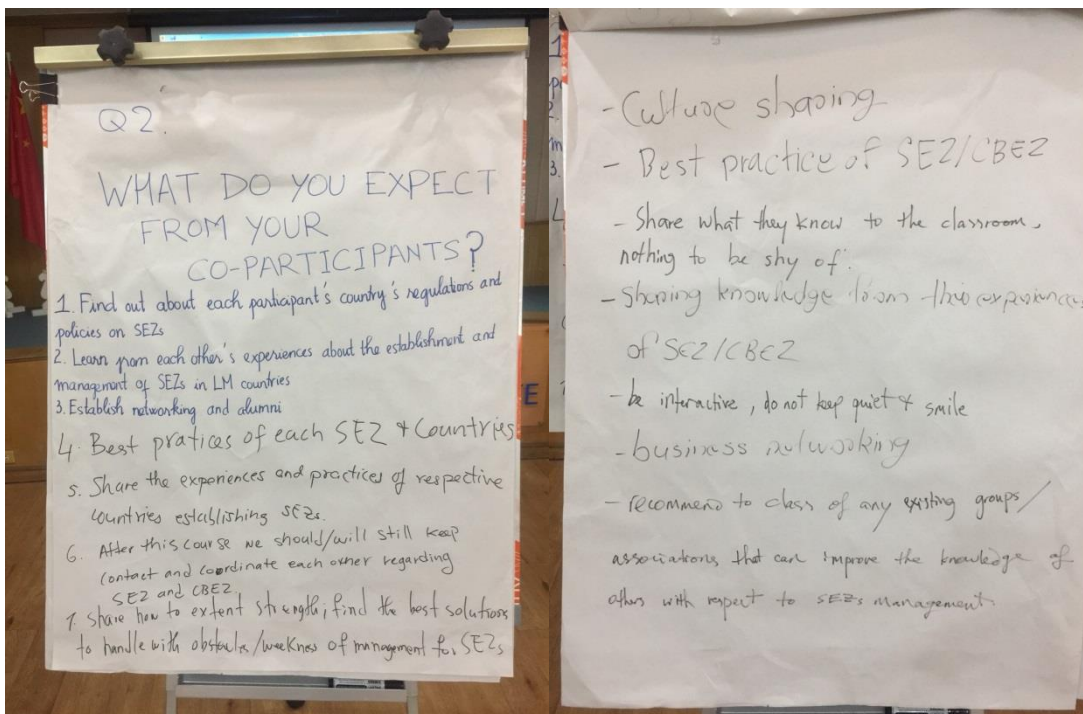 Q2.
WHAT DO YOU EXPECT
FROM YOUR
CO-PARTICIPANTS?
1. Find out about each participant's country's regulations and
policies on SEZs
2. Learn from each other's experiences about the establishment and
management of SEZs in LM countries
3. Establish networking and alumni
4. Best pratices of each SEZ & Countries
5. Share the experiences and practices of respective
countries establishing SEZs.
6. After this course we should/will still keep
contact and coordinate each other regarding
SEZ and CBEZ
7. Share how to extent strength, find the best solutions
to handle with obstacles/weekness of management for SEZs
E
1
2.
m
3.
- Culture sharing
- Best practice of SEZ/CBEZ
- Share what they know to the classroom,
nothing to be shy of.
- Sharing knowledge from experiences
of SEZ/CBEZ
- be interactive, do not keep quiet & smile
- business networking
- recommend to class of any existing groups/
associations that can improve the knowledge of
others with respect to SEZs management